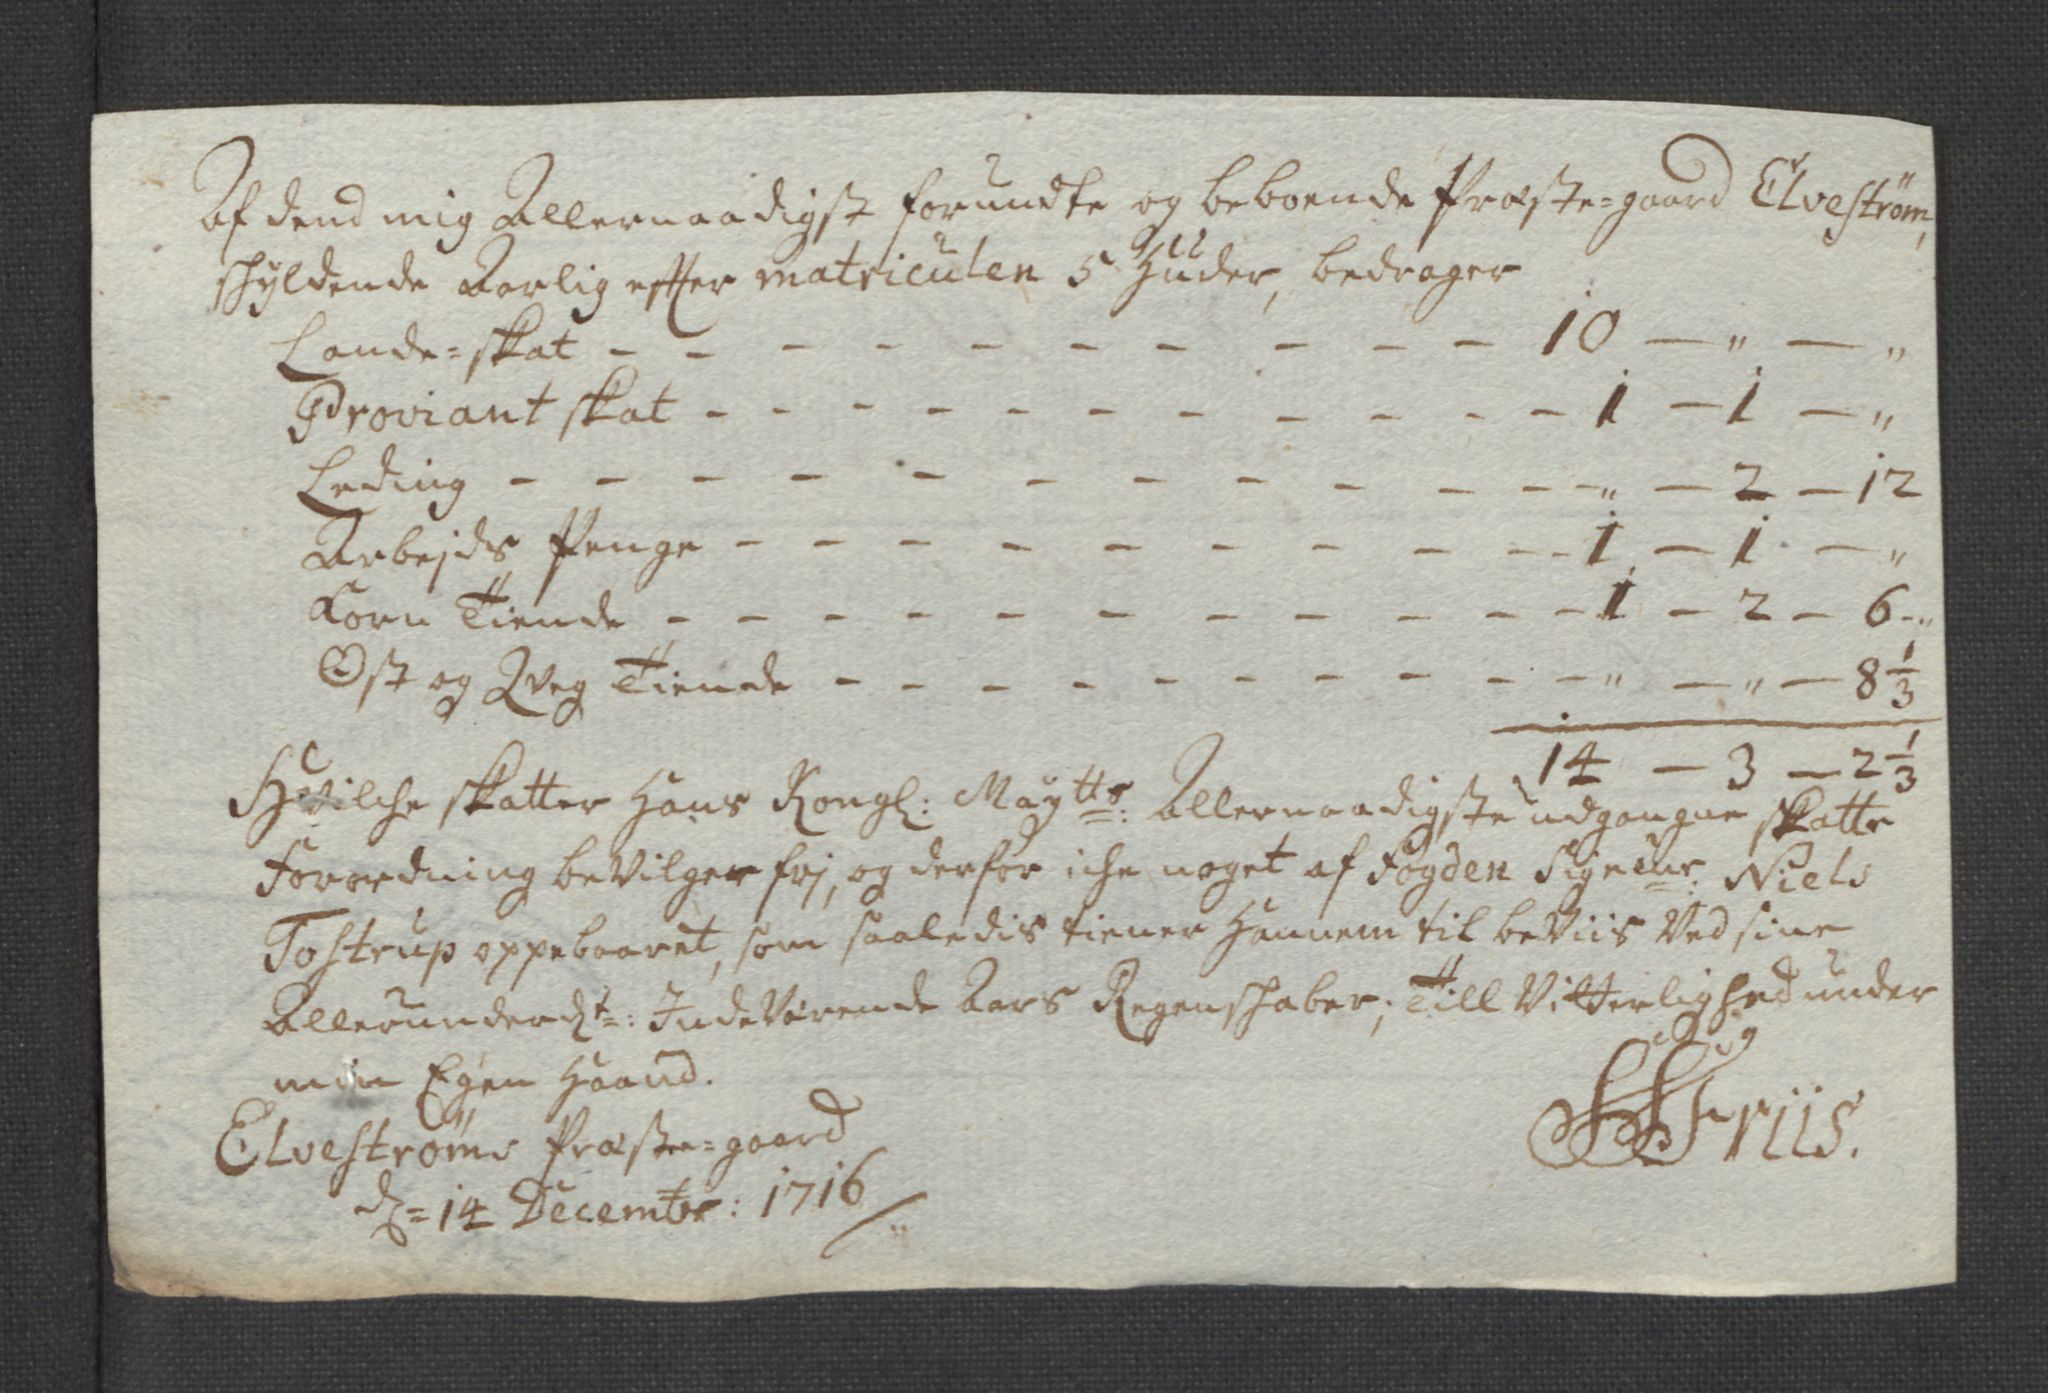 Af dend mig Allernaadigst forundte og beboende Præste=gaard Elveström,
schyldende Aarlig effter matriculen 5 Huder, bedrager
Lande=skat - - - - - - - - - - 10 — " — "
Proviant skat - - - - - - - - - - 1 — 1 — "
Leding - - - - - - - - - - - " — 2 — 12
Arbejds Penge - - - - - - - - - - 1 — 1 — "
Korn Tiende - - - - - - - - - - 1 — 2 — 6 - "
Ost og Qveg Tiende - - - - - - - - - " — " — 8 1/3
14 — 3 — 2 1/3
Hvilche skatter Hans Kongl: Maÿtts: Allernaadigste udgangne skatte
Forordning beVilger frj, og derfor iche noget af Fogden Signeur: Niels
Tostrup oppebaaret, som saaledis tiener Hannem til beViis Ved sine
Allerunderdt=: IndeVærende Aars Regenschaber; Till Vitterlighed under
min Egen Haand.
Elveströms Præste=gaard
d= 14 Decembr: 1716
Friis.